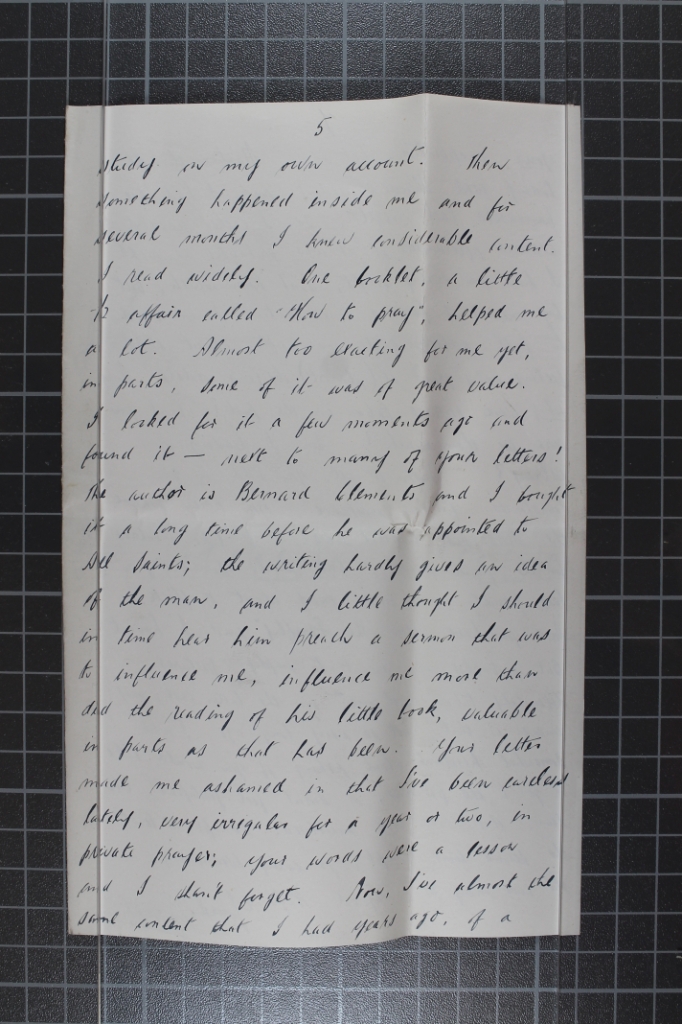 5
study on my own account. Then
something happened inside me and for
several months I knew considerable content.
I read widely. One booklet, a little
affair called "How to pray", helped me
a lot. Almost too exacting for me yet,
in parts, some of it was of great value.
I looked for it a few moments ago and
found it — next to many of your letters!
The author is Bernard Clements and I bought
it a long time before he was appointed to
All Saints; the writing hardly gives an idea
of the man, and I little thought I should
in time hear him preach a sermon that was
to influence me, influence me more than
did the reading of his little book, valuable
in parts as that has been. Your letter
made me ashamed in that I've been careless
lately, very irregular for a year or two, in
private prayer; your words were a lesson
and I shan't forget. Now, I've almost the
same content that I had years ago, of a